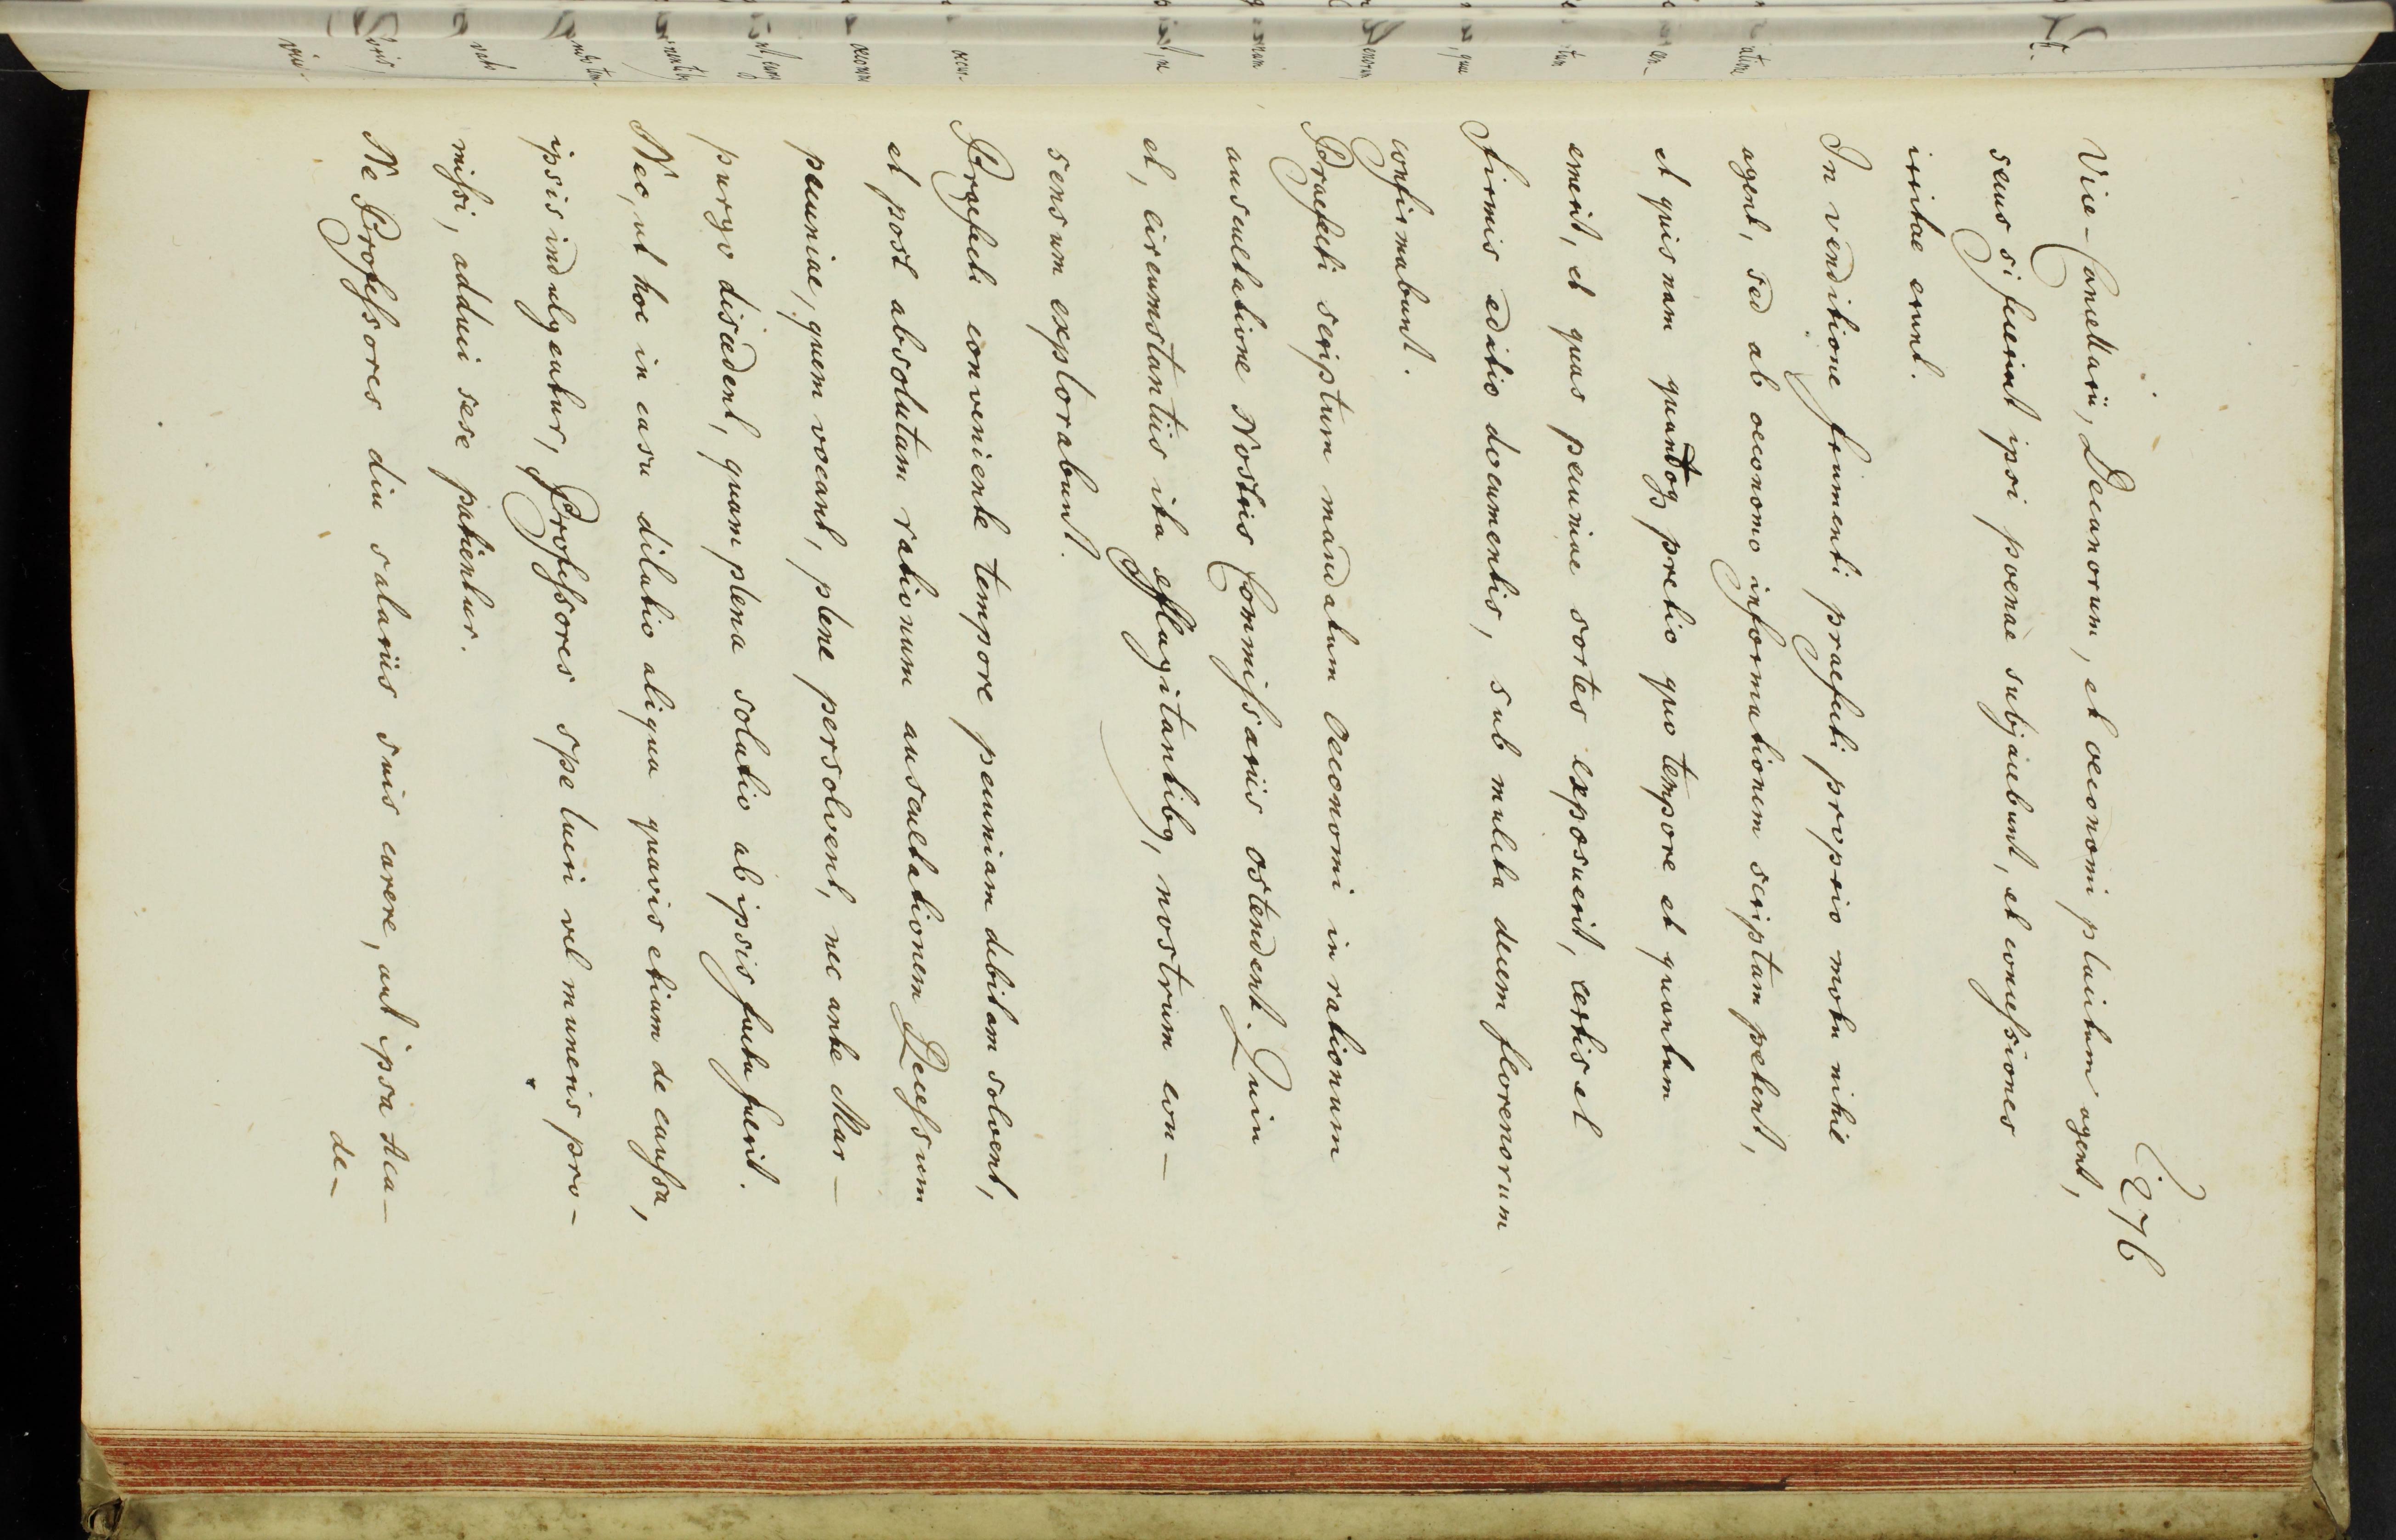 276
Vice-Cancellarii, Decanorum, et oeconomi placitum agent,
secus si fecerint ipsi poenae subjacebunt, et concessiones
irritae erunt.
In venditione frumenti praefecti proprio motu nihil
agent, sed ab oeconomo informationem scriptam petent,
et quisnam quantoq pretio quo tempore et quantum
emerit, et quas pecuniae sortes exposuerit, certis et
firmis editio documentis, sub mulcta decem florenorum
confirmabunt.
Praefecti scriptum mandatum Oeconomi in rationum
auscultatione Nostris Commissariis ostendent. Quin
et, circumstantiis ita efflagitantibq, nostrum con-
sensum explorabunt.
Praefecti conveniente tempore pecuniam debitam solvent,
et post absolutam rationum auscultationem Recessum
pecuniae, quem vocant, plene persolvent, nec ante Mar-
purgo discedent, quam plena solutio ab ipsis facta fuerit.
Nec, ut hoc in casu dilatio aliqua quavis etiam de caussa,
ipsis indulgeatur, Professores spe lucri vel muneris pro-
missi, adduci sese patientur.
Ne Professores diu salariis suis carere, aut ipsa Aca-
de-